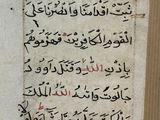 ثَبِّتْ أَقْدَامَنَا وَانْصُرْنَا عَلَى
الْقَوْمِ الْكَافِرِينَ فَهَزَمُوهُمْ
بِإِذْنِ اللَّهِ وَقَتَلَ دَاوُودُ
جَالُوتَ وَآتَاهُ اللَّهُ الْمُلْكَ